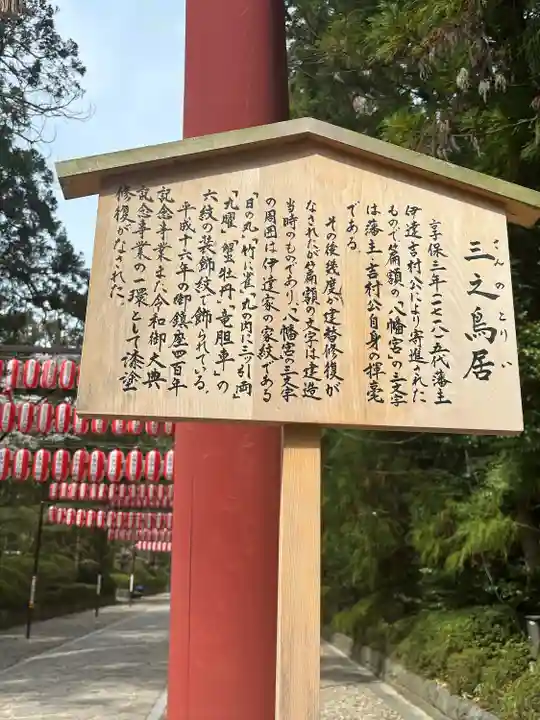 三之鳥居
さんのとりい
享保三年(一七一八)五代藩主
伊達吉村公により寄進された
もので篇額の「八幡宮」の三文字
は藩主・吉村公自身の揮毫
である。
その後幾度か建替修復が
なされたが篇額の文字は建造
当時のものであり、「八幡宮」の三文字
の周囲は伊達家の家紋である
「日の丸」「竹に雀」「丸の内に三ツ引両」
「九曜」「蟹牡丹」「竜胆車」の
六紋の装飾紋で飾られている。
平成十六年の御鎮座四百年
記念事業また令和御大典
記念事業の一環として漆塗
修復がなされた。